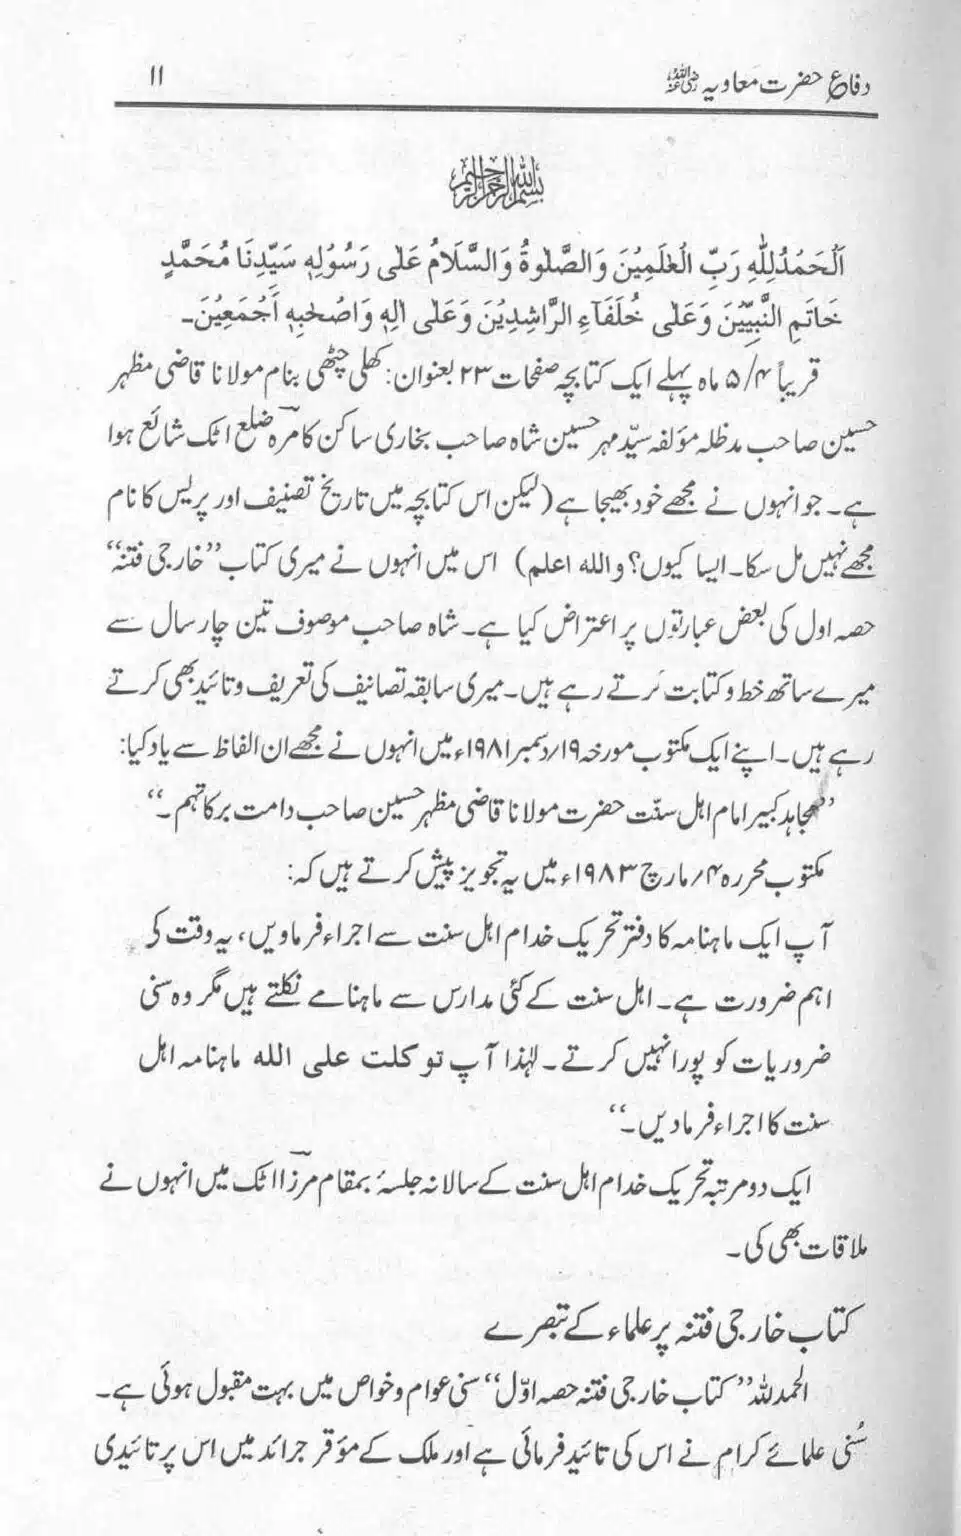 دفاع حضرت معاویہ رضی اللہ عنہ ۱۱
بسم اللہ الرحمن الرحیم
اَلْحَمْدُلِلّٰہِ رَبِّ الْعٰلَمِیْنَ وَالصَّلٰوۃُ وَالسَّلَامُ عَلٰی رَسُوْلِہٖ سَیِّدِنَا مُحَمَّدٍ
خَاتَمِ النَّبِیِّیْنَ وَعَلٰی خُلَفَآءِ الرَّاشِدِیْنَ وَعَلٰی اٰلِہٖ وَاَصْحٰبِہٖ اَجْمَعِیْنَ۔
قریباً ۵/۴ ماہ پہلے ایک کتابچہ صفحات ۲۳ بعنوان: کھلی چٹھی بنام مولانا قاضی مظہر
حسین صاحب مدظلہ مؤلفہ سیّد مہر حسین شاہ صاحب بخاری ساکن کامرہ ضلع اٹک شائع ہوا
ہے۔ جو انہوں نے مجھے خود بھیجا ہے (لیکن اس کتابچہ میں تاریخ تصنیف اور پریس کا نام
مجھے نہیں مل سکا۔ ایسا کیوں؟ واللہ اعلم) اس میں انہوں نے میری کتاب ”خارجی فتنہ“
حصہ اول کی بعض عبارتوں پر اعتراض کیا ہے۔ شاہ صاحب موصوف تین چار سال سے
میرے ساتھ خط و کتابت کرتے رہے ہیں۔ میری سابقہ تصانیف کی تعریف و تائید بھی کرتے
رہے ہیں۔ اپنے ایک مکتوب مورخہ ۱۹/دسمبر ۱۹۸۱ء میں انہوں نے مجھے ان الفاظ سے یاد کیا:
”مجاہد کبیر امام اہل سنّت حضرت مولانا قاضی مظہر حسین صاحب دامت برکاتہم۔“
مکتوب محررہ ۴/مارچ ۱۹۸۳ء میں یہ تجویز پیش کرتے ہیں کہ:
آپ ایک ماہنامہ کا دفتر تحریک خدام اہل سنت سے اجراء فرماویں، یہ وقت کی
اہم ضرورت ہے۔ اہل سنت کے کئی مدارس سے ماہنامے نکلتے ہیں مگر وہ سنی
ضروریات کو پورا نہیں کرتے۔ لہٰذا آپ توکلت علی اللہ ماہنامہ اہل
سنت کا اجراء فرمادیں۔“
ایک دو مرتبہ تحریک خدام اہل سنت کے سالانہ جلسۂ بمقام مرزا اٹک میں انہوں نے
ملاقات بھی کی۔
کتاب خارجی فتنہ پر علماء کے تبصرے
الحمدللہ ”کتاب خارجی فتنہ حصہ اوّل“ سنی عوام و خواص میں بہت مقبول ہوئی ہے۔
سُنی علمائے کرام نے اس کی تائید فرمائی ہے اور ملک کے مؤقر جرائد میں اس پر تائیدی